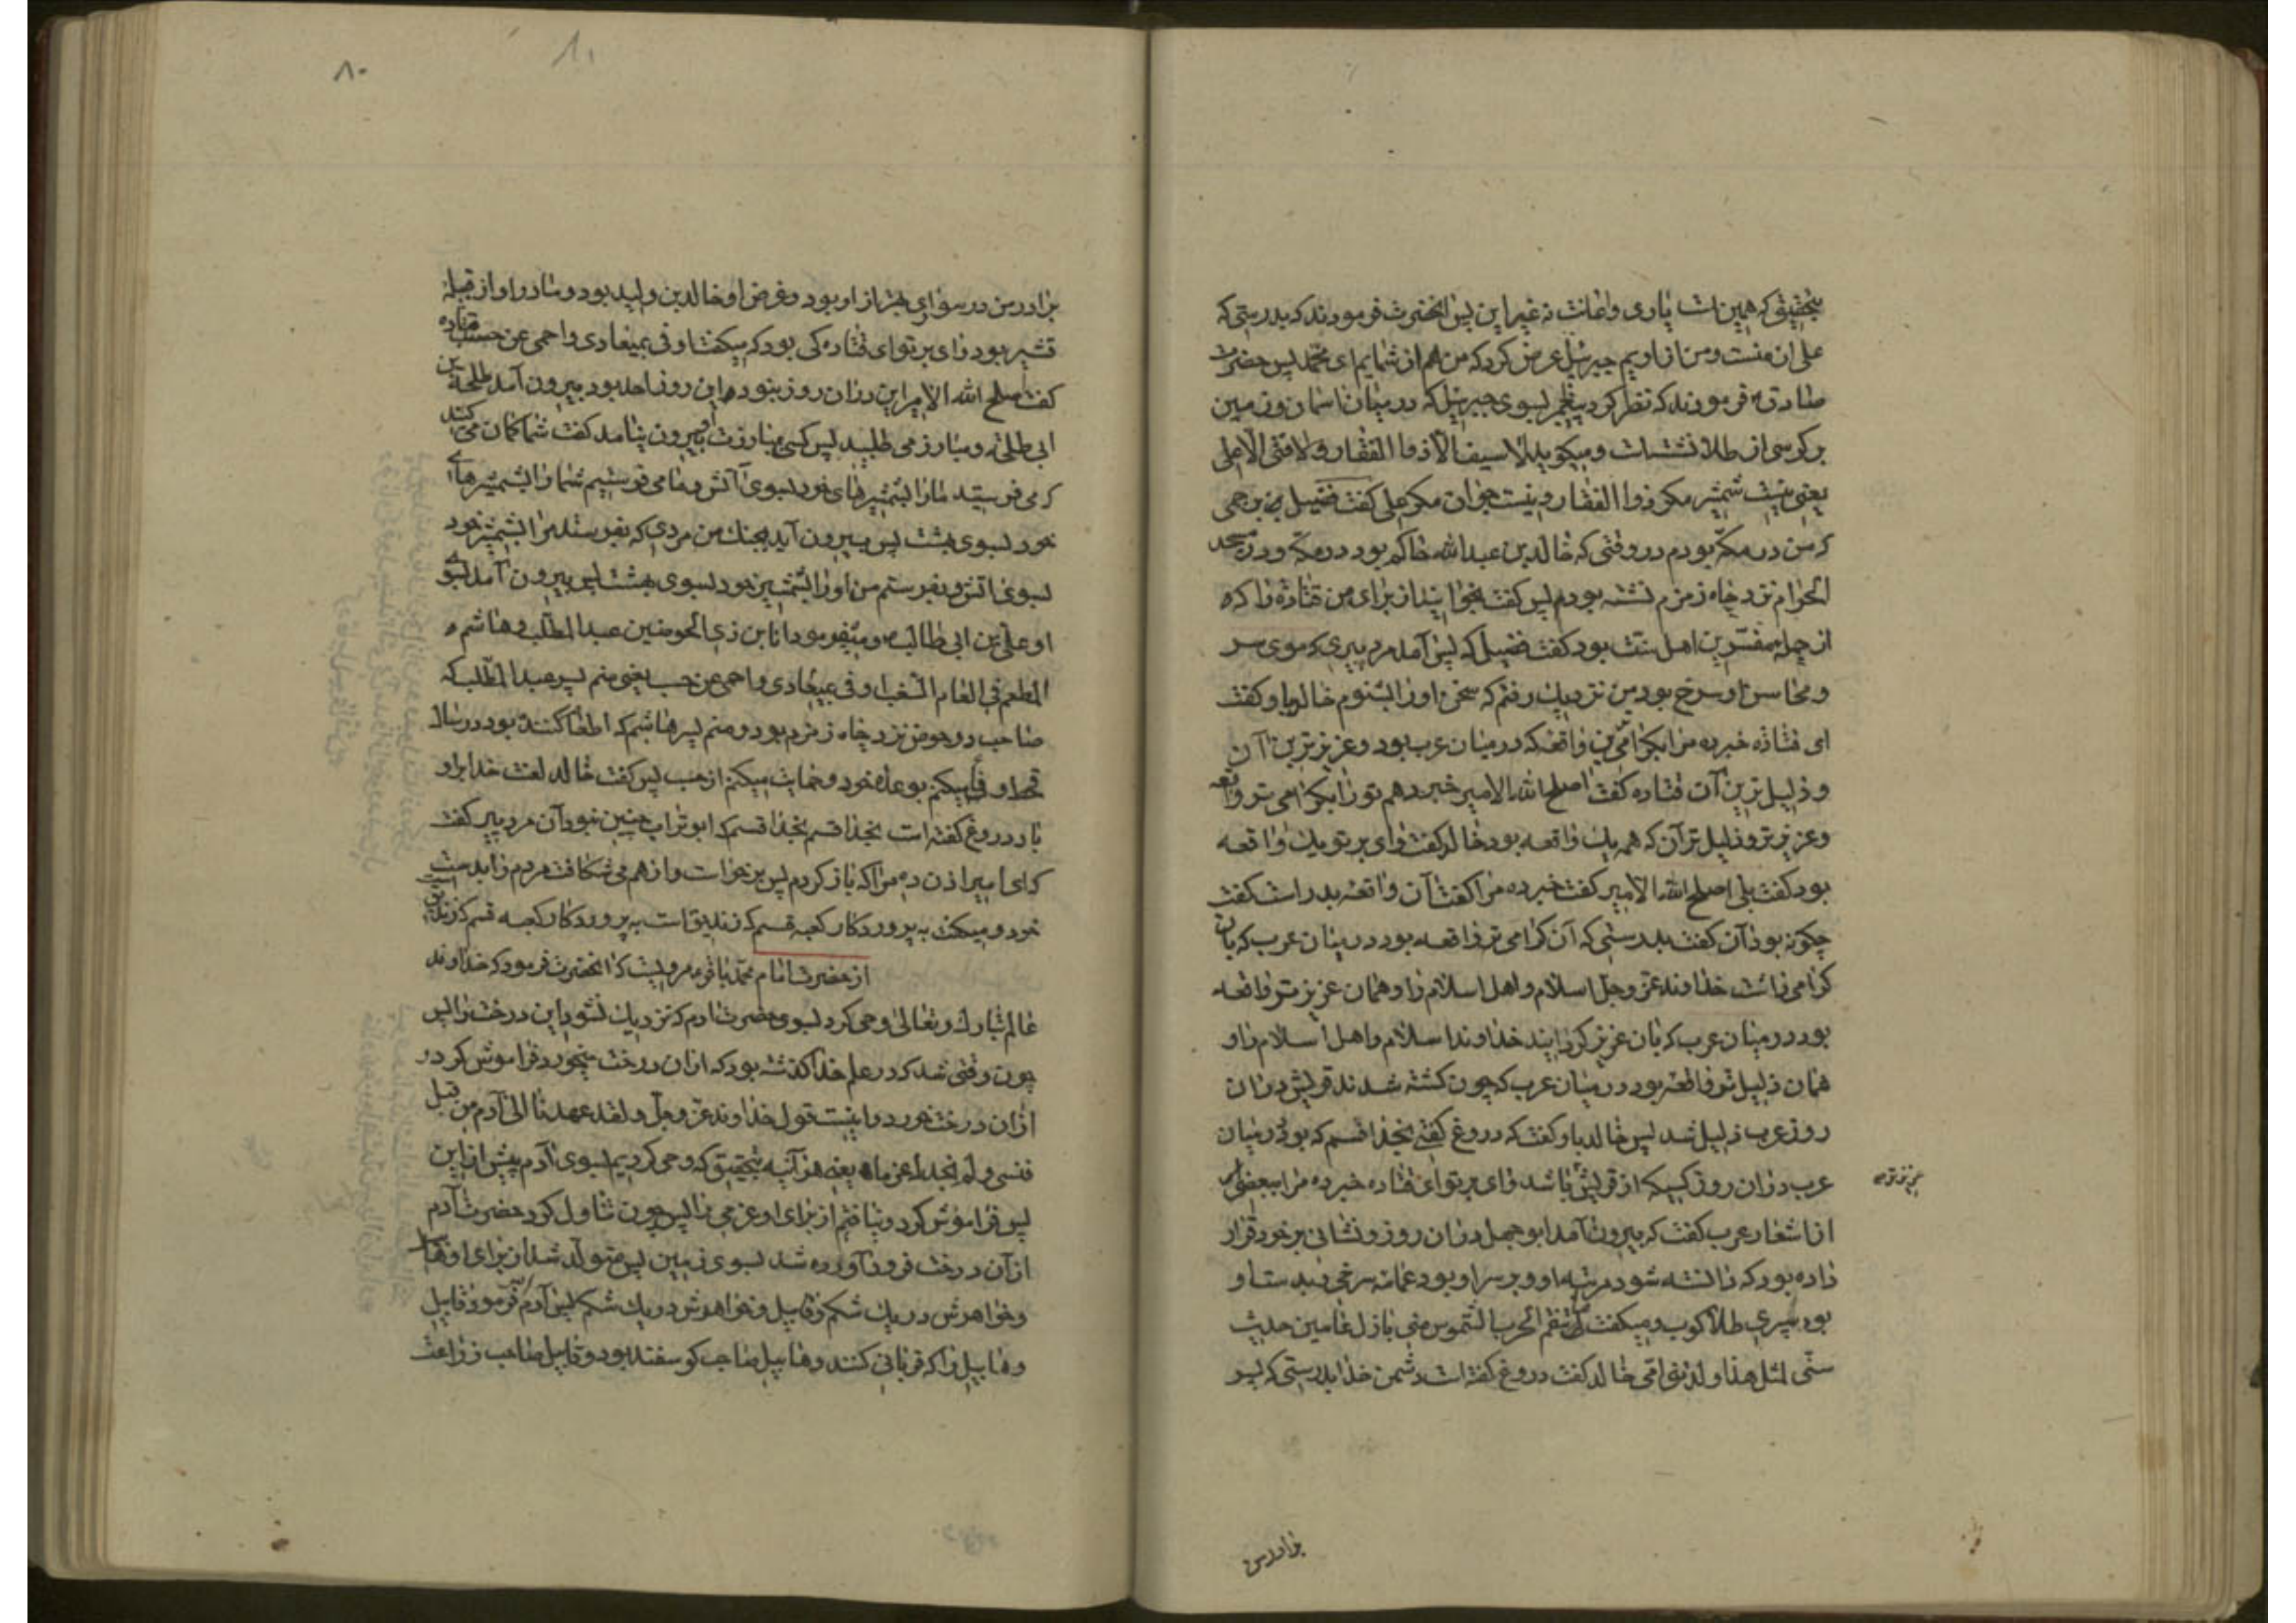 بتحقیق که همین است یاری و اعانت نه غیر این پس انحضرت فرمودند که بدرستی که
علی از منست و من از اویم جبرئیل عرض کرد که من هم از شمایم ای محمد پس حضرت
صادق ع فرمودند که نظر کرد پیغمبر بسوی جبرئیل که در میان اسمان و زمین
بر کرسی از طلا نشسته است و میکوید لا سیف الا ذو الفقار و لا فتی الا علی
یعنی نیست شمشیر مکر ذوالفقار و نیست جوان مکر علی کفت فضیل بن برجمی
که من در مکه بودم در وقتی که خالد بن عبدالله حاکم بود در مکه و در مسجد
الحرام نزد چاه زمزم نشسته بودم پس کفت بخوانید از برای من قتاده را که
از جمله مفسرین اهل سنت بود کفت فضیل که پس آمد مرد پیری که موی سر
و محاسن او سرخ بود من نزدیک رفتم که سخن او را بشنوم خالد باو کفت
ای قتاده خبر ده مرا بکرامی‌ترین واقعه که در میان عرب بود و عزیزترین آن
و ذلیل ترین آن قتاده کفت اصلح الله الامیر خبر دهم تو را بکرامی تر واقعه
و عزیزتر و ذلیل تر آن که همه یک واقعه بود خالد کفت وای بر تو یک واقعه
بود کفت بلی اصلح الله الامیر کفت خبر ده مرا کفت آن واقعه بدر است کفت
چکونه بود آن کفت بدرستی که آن کرامی تر واقعه بود در میان عرب که بان
کرامی داشت خداوند عز و جل اسلام و اهل اسلام را و همان عزیزتر واقعه
بود در میان عرب که بان عزیز کردانید خداوند اسلام و اهل اسلام را و
همان ذلیل تر واقعه بود در میان عرب که چون کشته شدند قریش در ان
روز عرب ذلیل شد پس خالد باو کفت که دروغ کفتی بخدا قسم که بود در میان
عرب در ان روز کسیکه از قریش باشد وای بر تو ای قتاده خبر ده مرا ببعضی
عزیزتر
از اشعار عرب کفت که بیرون آمد ابو جهل در ان روز و نشانی بر خود قرار
داده بود که دانسته شود مرتبه او و بر سر او بود عمامه سرخی و بدست او
بود سپری طلا کوب و میکفت ما تنقم الحرب الشموس منی بازل عامین حدیث
سنی لمثل هذا ولدتنی امی خالد کفت دروغ کفته است دشمن خدا بدرستی که پسر
برادر من
۸۰
۸۰
برادر من در سواری بهتر از او بود و غرض او خالد بن ولید بود و مادر او از قبیله
قشیر بود وای بر تو ای قتاده کی بود که میکفت اوفی بمیعادی و احمی عن حسب قتاده
کفت اصلح الله الامیر این در ان روز نبود و این روز احد بود بیرون آمد طلحة بن
ابی طلحه و مبارز می طلبید پس کسی بمبارزت او بیرون نیامد کفت شما کمان می کنید
که می فرستید ما را بشمشیرهای خود بسوی آتش و ما می فرستیم شما را بشمشیرهای
خود بسوی بهشت پس بیرون آید بجنک من مردی که بفرستد مرا بشمشیر خود
بسوی اتش و بفرستم من او را بشمشیر خود بسوی بهشت پس بیرون آمد بسوی
او علی بن ابی طالب ع و میفرمود انا ابن ذی الحوضین عبدالمطلب و هاشم
المطعم فی العام السغب اوفی بمیعادی و احمی عن حسب یعنی منم پسر عبدالمطلب که
صاحب دو حوض نزد چاه زمزم بود و منم پسر هاشم که اطعام کننده بود در سال
قحط وفا میکنم بوعده خود و حمایت میکنم از حسب پس کفت خالد لعنت خدا بر او
باد دروغ کفته است بخدا قسم بخدا قسم که ابوتراب چنین نبود آن مرد پیر کفت
که ای امیر اذن ده مرا که باز کردم پس برخواست و از هم می شکافت مردم را بدست
خود و میکفت به پروردکار کعبه قسم که زندیق است به پروردکار کعبه قسم که زندیق است
از حضرت امام محمد باقر ع مرویست که انحضرت فرمود که خداوند
عالم تبارک و تعالی وحی کرد بسوی حضرت ادم که نزدیک نشو باین درخت را پس
چون وقتی شد که در علم خدا کذشته بود که از ان درخت بخورد فراموش کرد و
از ان درخت خورد و اینست قول خداوند عز و جل و لقد عهدنا الی آدم من قبل
فنسی و لم نجد له عزما یعنی هر آینه بتحقیق که وحی کردیم بسوی آدم پیش از این
پس فراموش کرد و نیافتیم از برای او عزمی را پس چون تناول کرد حضرت آدم
از آن درخت فرود آورده شد بسوی زمین پس متولد شد از برای او هابیل
و خواهرش در یک شکم و قابیل و خواهرش در یک شکم پس آدم فرمود قابیل
و هابیل را که قربانی کنند و هابیل صاحب کوسفند بود و قابیل صاحب زراعت